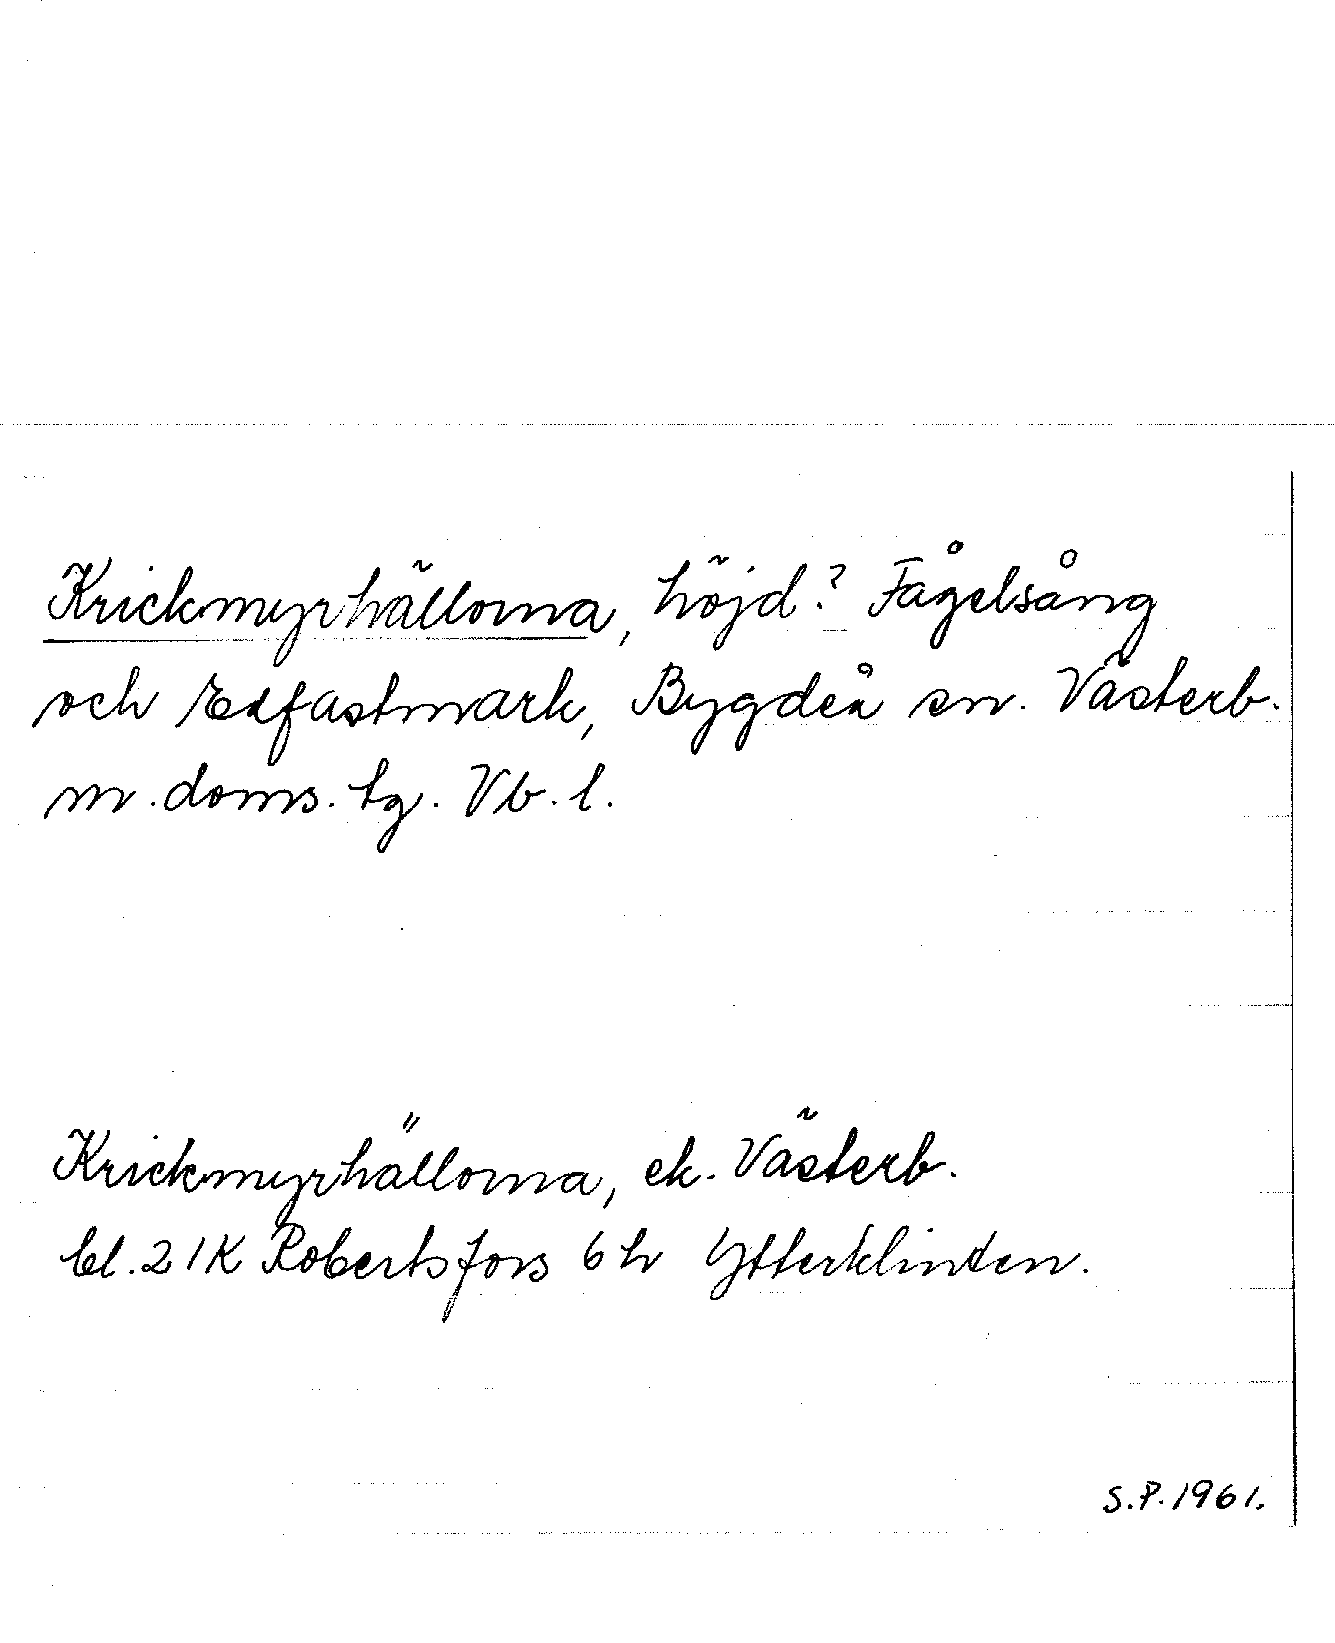 Krickmyrhällorna, höjd? Fågelsång
och Edfastmark, Bygdeå sn. Västerb.
m. doms. tg. Vb. l.
Krickmyrhällorna, ek. Västerb.
bl. 21K Robertsfors 6 h Ytterklinten.
S.P. 1961.